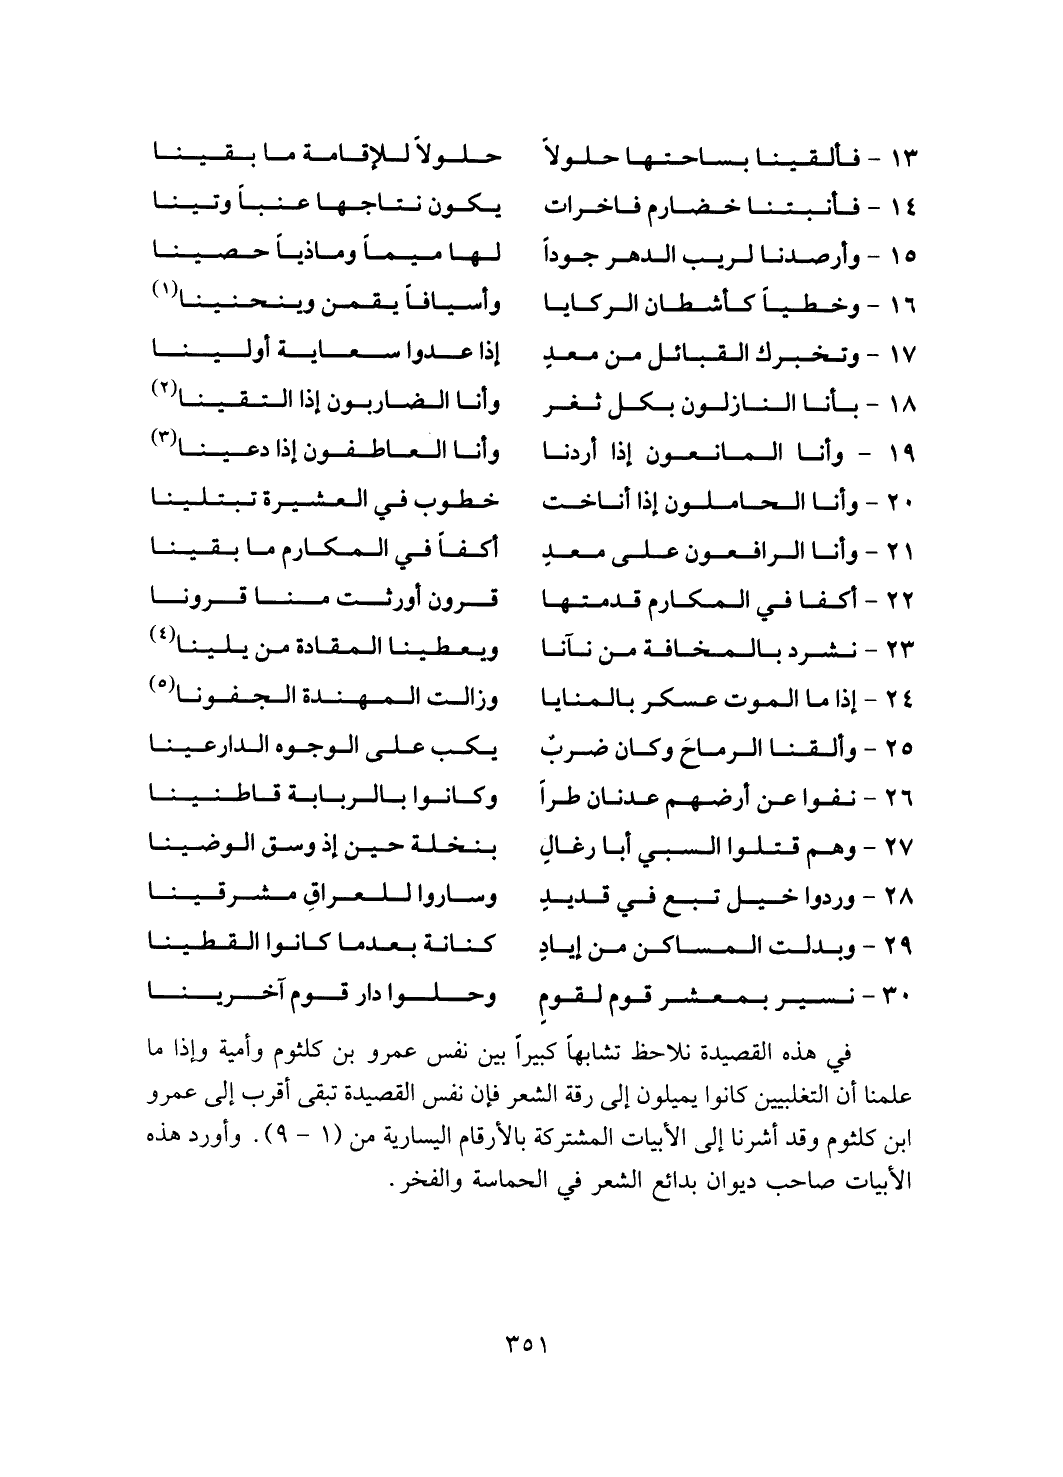 ١٣ - فألقينا بساحتها حلولاً حلولاً للإقامة ما بقينا
١٤ - فأنبتنا خضارم فاخرات يكون نتاجها عنباً وتينا
١٥ - وأرصدنا لريب الدهر جوداً لها ميماً وماذياً حصينا
١٦ - وخطياً كأشطان الركايا وأسيافاً يقمن وينحنينا(١)
١٧ - وتخبرك القبائل من معدٍ إذا عدوا سعاية أولينا
١٨ - بأنا النازلون بكل ثغر وأنا الضاربون إذا التقينا(٢)
١٩ - وأنا المانعون إذا أردنا وأنا العاطفون إذا دعينا(٣)
٢٠ - وأنا الحاملون إذا أناخت خطوب في العشيرة تبتلينا
٢١ - وأنا الرافعون على معدٍ أكفاً في المكارم ما بقينا
٢٢ - أكفا في المكارم قدمتها قرون أورثت منا قرونا
٢٣ - نشرد بالمخافة من نآنا ويعطينا المقادة من يلينا(٤)
٢٤ - إذا ما الموت عسكر بالمنايا وزالت المهندة الجفونا(٥)
٢٥ - وألقنا الرماحَ وكان ضربٌ يكب على الوجوه الدارعينا
٢٦ - نفوا عن أرضهم عدنان طراً وكانوا بالربابة قاطنينا
٢٧ - وهم قتلوا السبي أبا رغالٍ بنخلة حين إذ وسق الوضينا
٢٨ - وردوا خيل تبع في قديدٍ وساروا للعراقِ مشرقينا
٢٩ - وبدلت المساكن من إيادٍ كنانة بعدما كانوا القطينا
٣٠ - نسير بمعشر قوم لقومٍ وحلوا دار قوم آخرينا
في هذه القصيدة نلاحظ تشابهاً كبيراً بين نفس عمرو بن كلثوم وأمية وإذا ما
علمنا أن التغلبيين كانوا يميلون إلى رقة الشعر فإن نفس القصيدة تبقى أقرب إلى عمرو
ابن كلثوم وقد أشرنا إلى الأبيات المشتركة بالأرقام اليسارية من (١ - ٩). وأورد هذه
الأبيات صاحب ديوان بدائع الشعر في الحماسة والفخر.
٣٥١